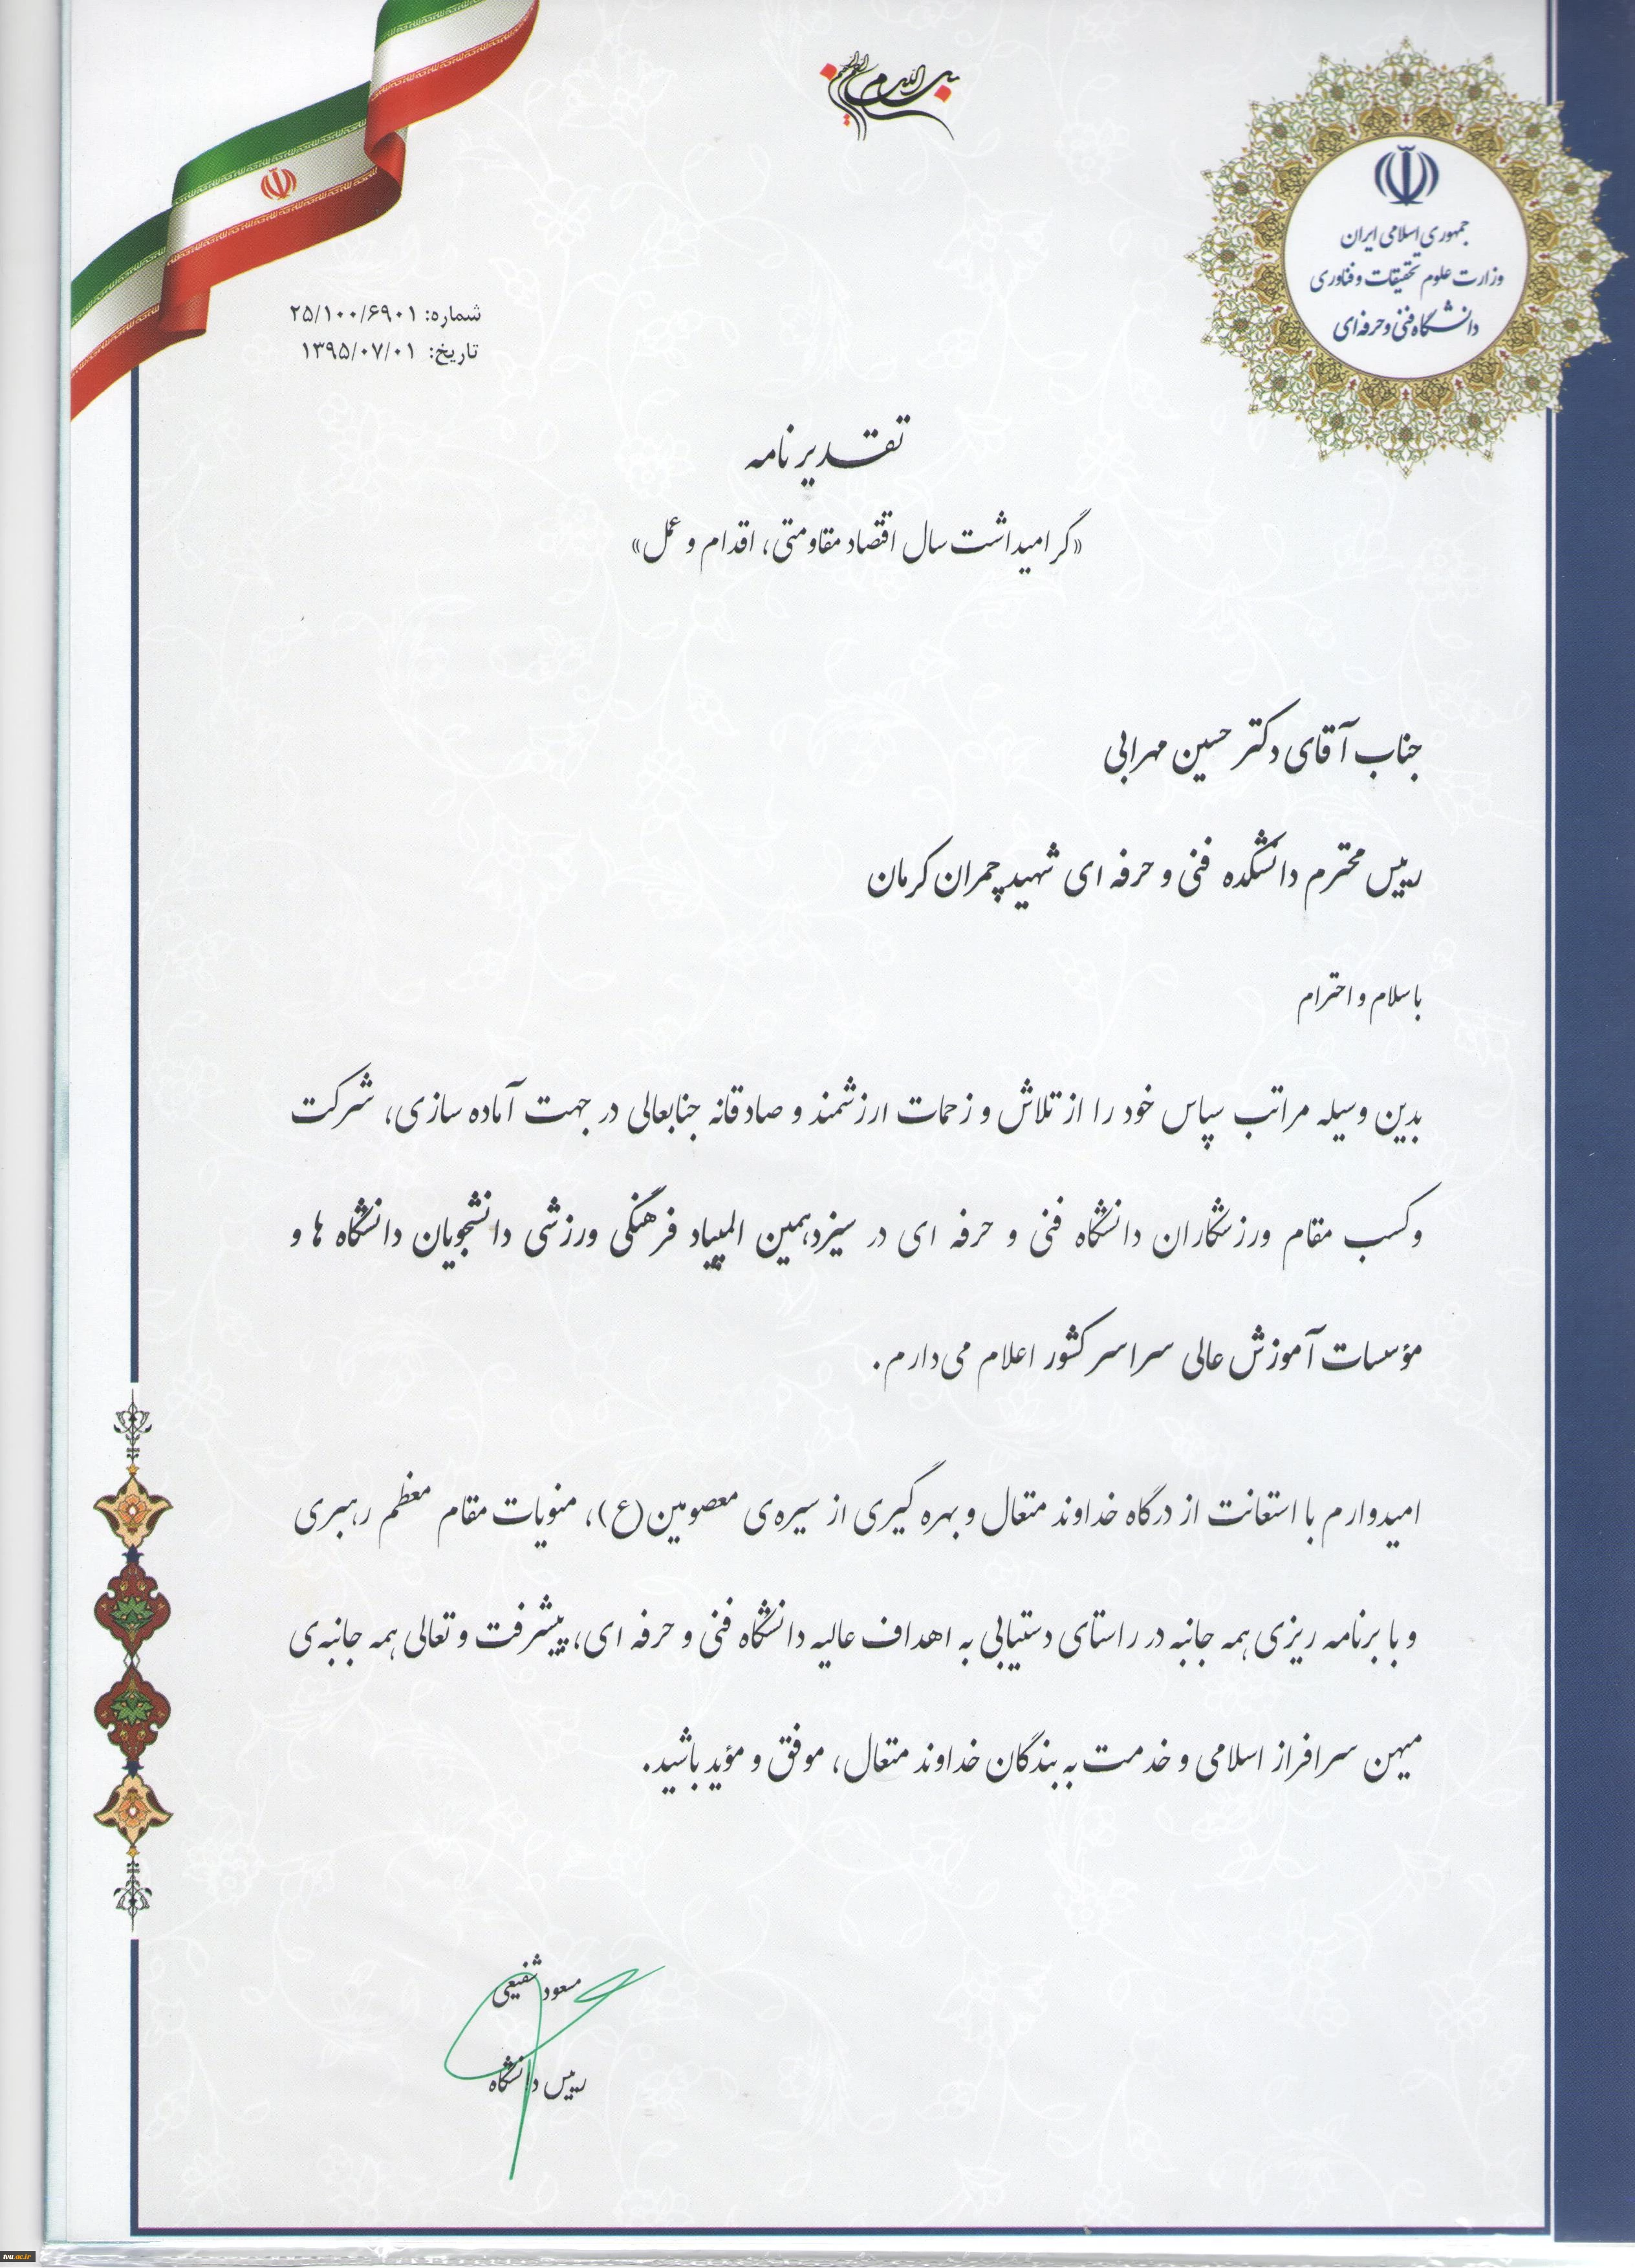 بسم الله الرحمن الرحیم
جمهوری اسلامی ایران
وزارت علوم تحقیقات و فناوری
دانشگاه فنی و حرفه ای
شماره: ۲۵/۱۰۰/۶۹۰۱
تاریخ: ۱۳۹۵/۰۷/۰۱
تقدیرنامه
«گرامیداشت سال اقتصاد مقاومتی، اقدام و عمل»
جناب آقای دکتر حسین مهرابی
رییس محترم دانشکده فنی و حرفه ای شهید چمران کرمان
با سلام و احترام
بدین وسیله مراتب سپاس خود را از تلاش و زحمات ارزشمند و صادقانه جنابعالی در جهت آماده سازی، شرکت
و کسب مقام ورزشکاران دانشگاه فنی و حرفه ای در سیزدهمین المپیاد فرهنگی ورزشی دانشجویان دانشگاه ها و
مؤسسات آموزش عالی سراسر کشور اعلام می‌دارم.
امیدوارم با استعانت از درگاه خداوند متعال و بهره گیری از سیره‌ی معصومین(ع)، منویات مقام معظم رهبری
و با برنامه ریزی همه جانبه در راستای دستیابی به اهداف عالیه دانشگاه فنی و حرفه ای، پیشرفت و تعالی همه جانبه‌ی
میهن سرافراز اسلامی و خدمت به بندگان خداوند متعال، موفق و مؤید باشید.
مسعود شفیعی
رییس دانشگاه
tvu.ac.ir